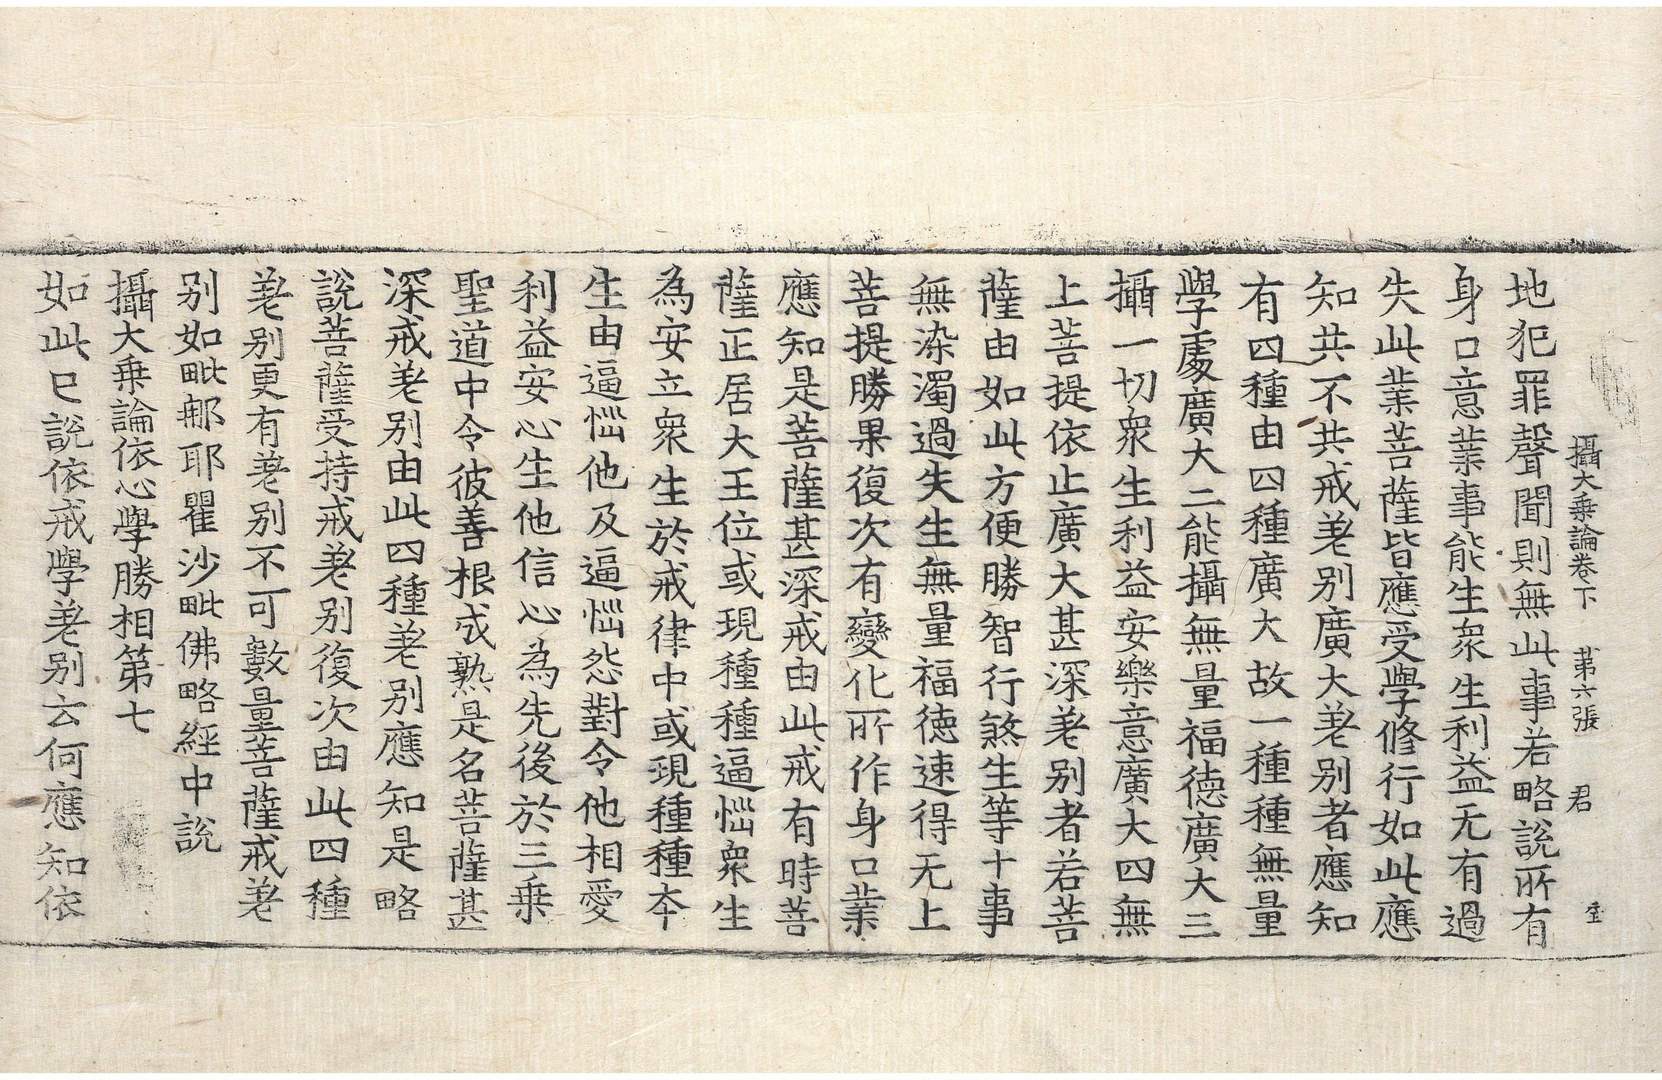 攝大乘論卷下 第六張 君
地犯罪聲聞則無此事若略說所有
身口意業事能生衆生利益无有過
失此業菩薩皆應受學修行如此應
知共不共戒差别廣大差别者應知
有四種由四種廣大故一種種無量
學處廣大二能攝無量福德廣大三
攝一切衆生利益安樂意廣大四無
上菩提依止廣大甚深差别者若菩
薩由如此方便勝智行煞生等十事
無染濁過失生無量福德速得无上
菩提勝果復次有變化所作身口業
應知是菩薩甚深戒由此戒有時菩
薩正居大王位或現種種逼惱衆生
為安立衆生於戒律中或現種種本
生由逼惱他及逼惱怨對令他相愛
利益安心生他信心為先後於三乗
聖道中令彼善根成熟是名菩薩甚
深戒差别由此四種差别應知是略
說菩薩受持戒差别復次由此四種
差别更有差别不可數量菩薩戒差
别如毗郍耶瞿沙毗佛略經中說
攝大乗論依心學勝相第七
如此已說依戒學差别云何應知依